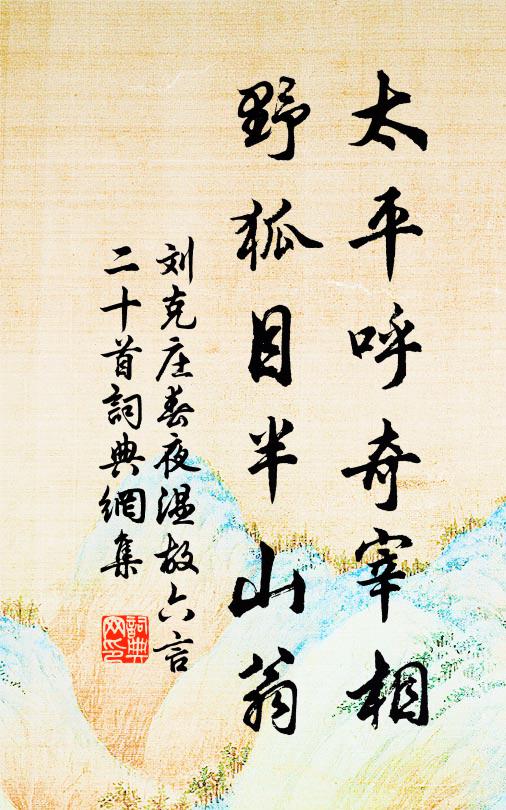 太平呼奇宰相
野狐目半山翁
刘克庄春夜温故六言
二十首詞典網集
詞典
网印